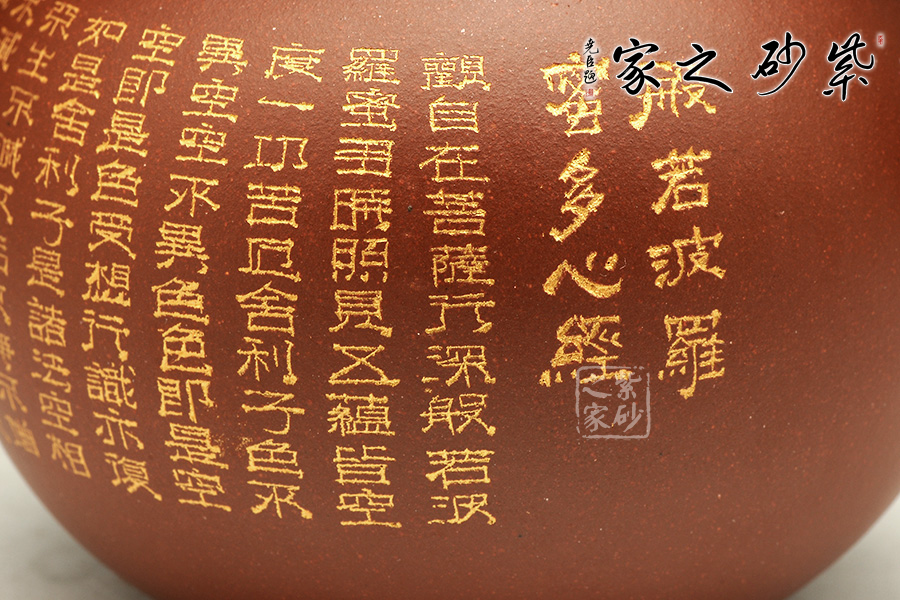 紫砂之家
堯臣題
般若波羅
蜜多心經
觀自在菩薩行深般若波
羅蜜多時照見五蘊皆空
度一切苦厄舍利子色不
異空空不異色色即是空
空即是色受想行識亦復
如是舍利子是諸法空相
不生不滅不
紫砂之家